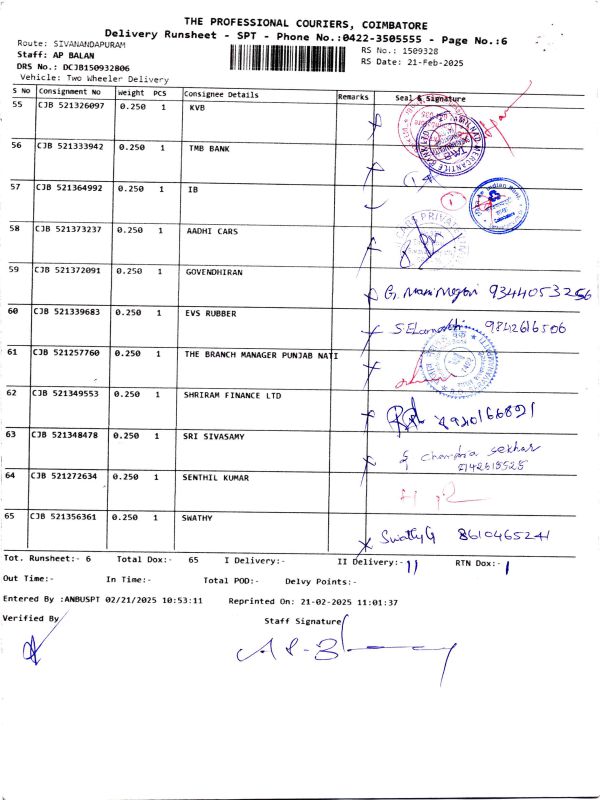 THE PROFESSIONAL COURIERS, COIMBATORE
Delivery Runsheet - SPT - Phone No.:0422-3505555 - Page No.:6
Route: SIVANANDAPURAM
RS No.: 1509328
Staff: AP BALAN
RS Date: 21-Feb-2025
DRS No.: DCJB150932806
Vehicle: Two Wheeler Delivery
S No Consignment No Weight PCS Consignee Details Remarks Seal & Signature
55 CJB 521326097 0.250 1 KVB
56 CJB 521333942 0.250 1 TMB BANK
57 CJB 521364992 0.250 1 IB
58 CJB 521373237 0.250 1 AADHI CARS
59 CJB 521372091 0.250 1 GOVENDHIRAN
9344053256
60 CJB 521339683 0.250 1 EVS RUBBER
9842616506
61 CJB 521257760 0.250 1 THE BRANCH MANAGER PUNJAB NATI
62 CJB 521349553 0.250 1 SHRIRAM FINANCE LTD
63 CJB 521348478 0.250 1 SRI SIVASAMY
Chandra sekhar
64 CJB 521272634 0.250 1 SENTHIL KUMAR
65 CJB 521356361 0.250 1 SWATHY
Swathy G 8610465241
Tot. Runsheet:- 6 Total Dox:- 65 I Delivery:- II Delivery:- 11 RTN Dox:- 1
Out Time:- In Time:- Total POD:- Delvy Points:-
Entered By :ANBUSPT 02/21/2025 10:53:11 Reprinted On: 21-02-2025 11:01:37
Verified By Staff Signature
A P - B